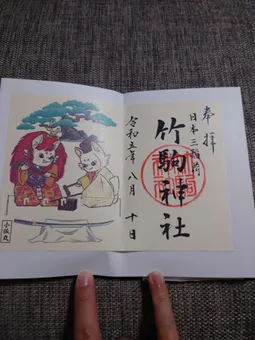 奉拝
日本三稲荷
竹駒神社
令和五年八月十日
小狐丸